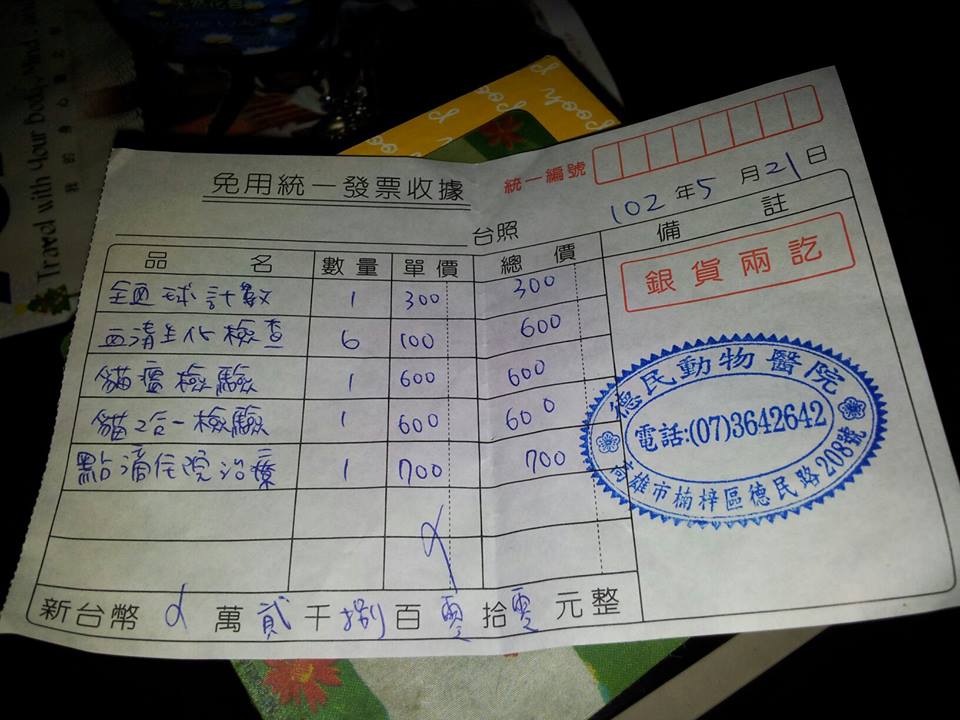 Travel with your Body, Mind
我的身心靈之
pooh
pooh
免用統一發票收據
統一編號
102年5月21日
台照
品名 數量 單價 總價 備註
全血球計數 1 300 300
血清生化檢查 6 100 600
貓瘟檢驗 1 600 600
貓2合一檢驗 1 600 600
點滴住院治療 1 700 700
銀貨兩訖
德民動物醫院
電話:(07)3642642
高雄市楠梓區德民路208號
新台幣 萬貳千捌百零拾零元整